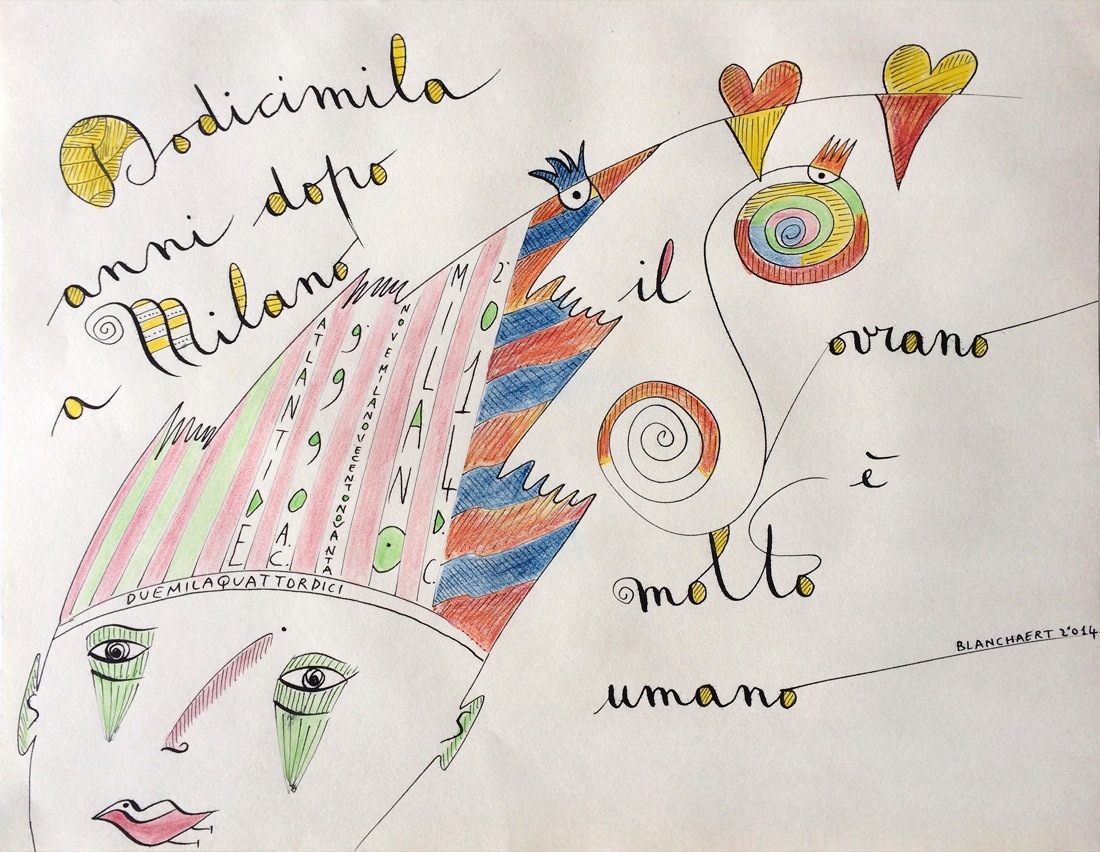 Dodicimila
anni dopo
a Milano
il Sovrano
è
molto
umano
ATLANTIDE
9.990 A.C.
NOVEMILANOVECENTONOVANTA
MILANO
2°014 D.C.
DUEMILAQUATTORDICI
BLANCHAERT 2°014